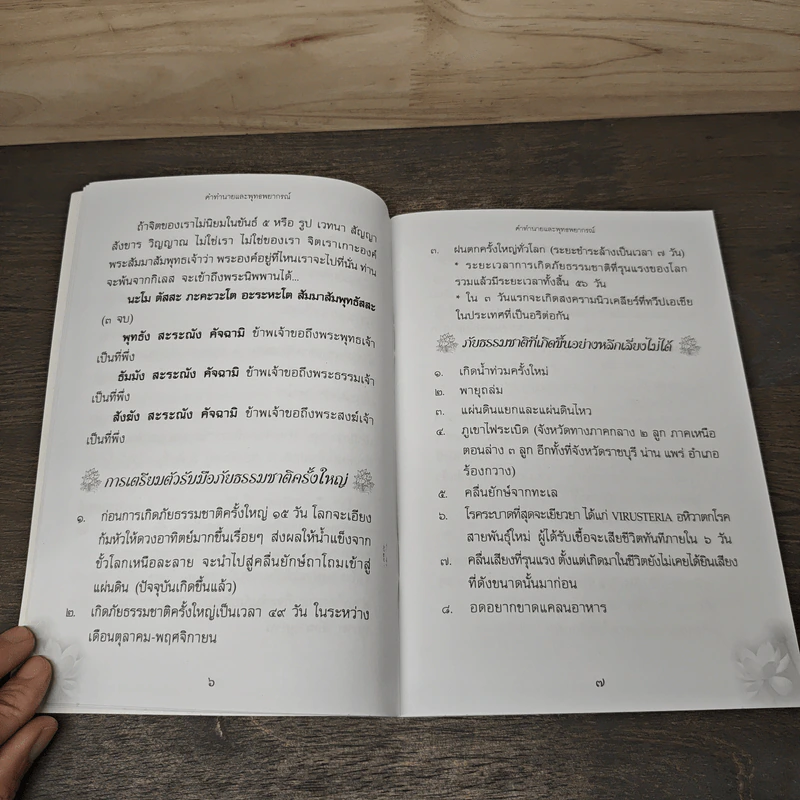 คำทำนายและพุทธพยากรณ์
ถ้าจิตของเราไม่นิยมในขันธ์ ๕ หรือ รูป เวทนา สัญญา
สังขาร วิญญาณ ไม่ใช่เรา ไม่ใช่ของเรา จิตเราเกาะองค์
พระสัมมาสัมพุทธเจ้าว่า พระองค์อยู่ที่ไหนเราจะไปที่นั่น ท่าน
จะพ้นจากกิเลส จะเข้าถึงพระนิพพานได้...
นะโม ตัสสะ ภะคะวะโต อะระหะโต สัมมาสัมพุทธัสสะ
(๓ จบ)
พุทธัง สะระณัง คัจฉามิ ข้าพเจ้าขอถึงพระพุทธเจ้า
เป็นที่พึ่ง
ธัมมัง สะระณัง คัจฉามิ ข้าพเจ้าขอถึงพระธรรมเจ้า
เป็นที่พึ่ง
สังฆัง สะระณัง คัจฉามิ ข้าพเจ้าขอถึงพระสงฆ์เจ้า
เป็นที่พึ่ง
การเตรียมตัวรับมือภัยธรรมชาติครั้งใหญ่
๑. ก่อนการเกิดภัยธรรมชาติครั้งใหญ่ ๑๕ วัน โลกจะเอียง
กัมหัวให้ดวงอาทิตย์มากขึ้นเรื่อยๆ ส่งผลให้น้ำแข็งจาก
ขั้วโลกเหนือละลาย จะนำไปสู่คลื่นยักษ์ถาโถมเข้าสู่
แผ่นดิน (ปัจจุบันเกิดขึ้นแล้ว)
๒. เกิดภัยธรรมชาติครั้งใหญ่เป็นเวลา ๔๙ วัน ในระหว่าง
เดือนตุลาคม-พฤศจิกายน
๖
คำทำนายและพุทธพยากรณ์
๓. ฝนตกครั้งใหญ่ทั่วโลก (ระยะชำระล้างเป็นเวลา ๗ วัน)
* ระยะเวลาการเกิดภัยธรรมชาติที่รุนแรงของโลก
รวมแล้วมีระยะเวลาทั้งสิ้น ๕๖ วัน
* ใน ๓ วันแรกจะเกิดสงครามนิวเคลียร์ที่ทวีปเอเชีย
ในประเทศที่เป็นอริต่อกัน
ภัยธรรมชาติที่เกิดขึ้นอย่างหลีกเลี่ยงไม่ได้
๑. เกิดน้ำท่วมครั้งใหม่
๒. พายุถล่ม
๓. แผ่นดินแยกและแผ่นดินไหว
๔. ภูเขาไฟระเบิด (จังหวัดทางภาคกลาง ๒ ลูก ภาคเหนือ
ตอนล่าง ๓ ลูก อีกทั้งที่จังหวัดราชบุรี น่าน แพร่ อำเภอ
ร้องกวาง)
๕. คลื่นยักษ์จากทะเล
๖. โรคระบาดที่สุดจะเยียวยา ได้แก่ VIRUSTERIA อหิวาตกโรค
สายพันธุ์ใหม่ ผู้ได้รับเชื้อจะเสียชีวิตทันทีภายใน ๖ วัน
๗. คลื่นเสียงที่รุนแรง ตั้งแต่เกิดมาในชีวิตยังไม่เคยได้ยินเสียง
ที่ดังขนาดนั้นมาก่อน
๘. อดอยากขาดแคลนอาหาร
๗